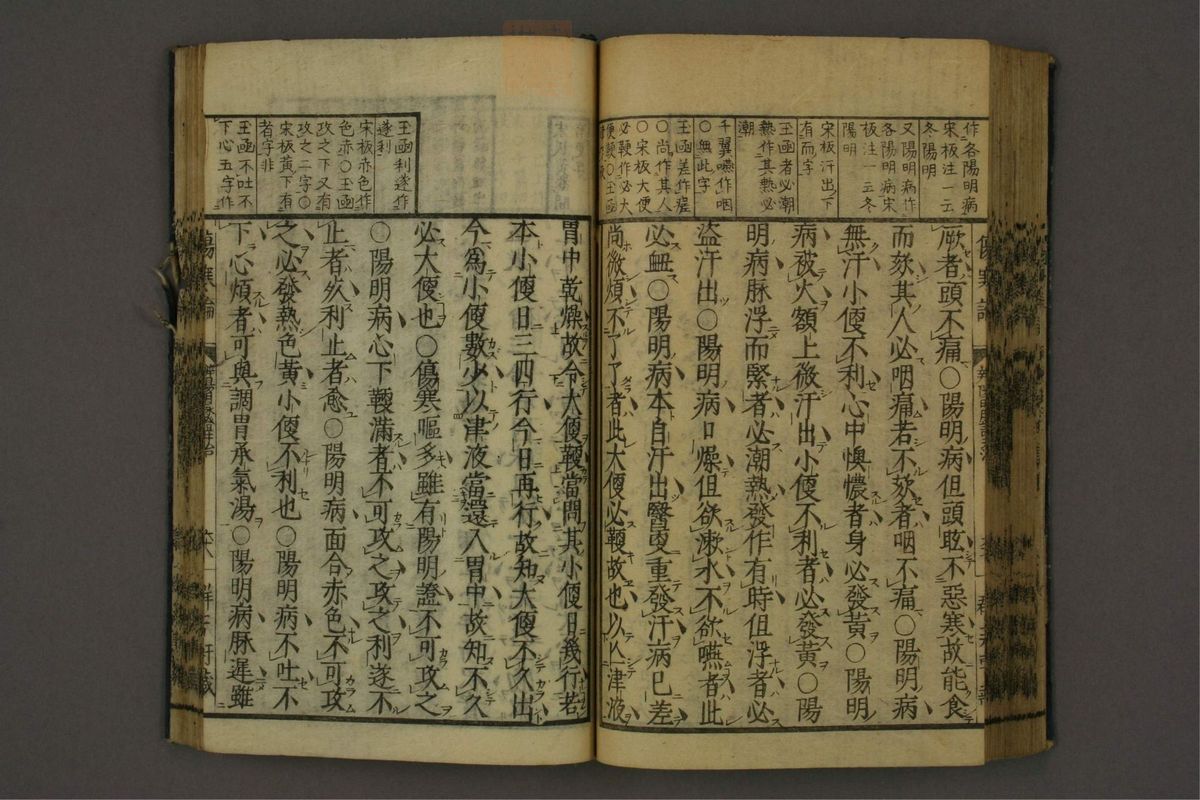 作各陽明病
宋板注一云
冬陽明
又陽明病作
各陽明病宋
板注一云冬
陽明
宋板汗出下
有而字
王函者必潮
熱作其熱必
潮
千翼嚥作咽
○無此字
王函差作瘥
○尚作其人
○宋板大便
必鞕作必大
便鞕○王函
厥者頭不痛○陽明病但頭眩不惡寒故能食
而欬其人必咽痛若不欬者咽不痛○陽明病
無汗小便不利心中懊憹者身必發黃○陽明
病被火額上微汗出小便不利者必發黃○陽
明病脉浮而緊者必潮熱發作有時但浮者必
盜汗出○陽明病口燥但欲漱水不欲嚥者此
必衂○陽明病本自汗出醫更重發汗病已差
尚微煩不了了者此大便必鞕故也以亡津液
王函利遂作
遂利
宋板赤色作
色赤○王函
攻之下又有
攻之二字○
宋板黃下有
者字非
王函不吐不
下心五字作
胃中乾燥故令大便鞕當問其小便日幾行若
本小便日三四行今日再行故知大便不久出
今爲小便數少以津液當還入胃中故知不久
必大便也○傷寒嘔多雖有陽明證不可攻之
○陽明病心下鞕滿者不可攻之攻之利遂不
止者死利止者愈○陽明病面合赤色不可攻
之必發熱色黃小便不利也○陽明病不吐不
下心煩者可與調胃承氣湯○陽明病脉遲雖
傷寒論